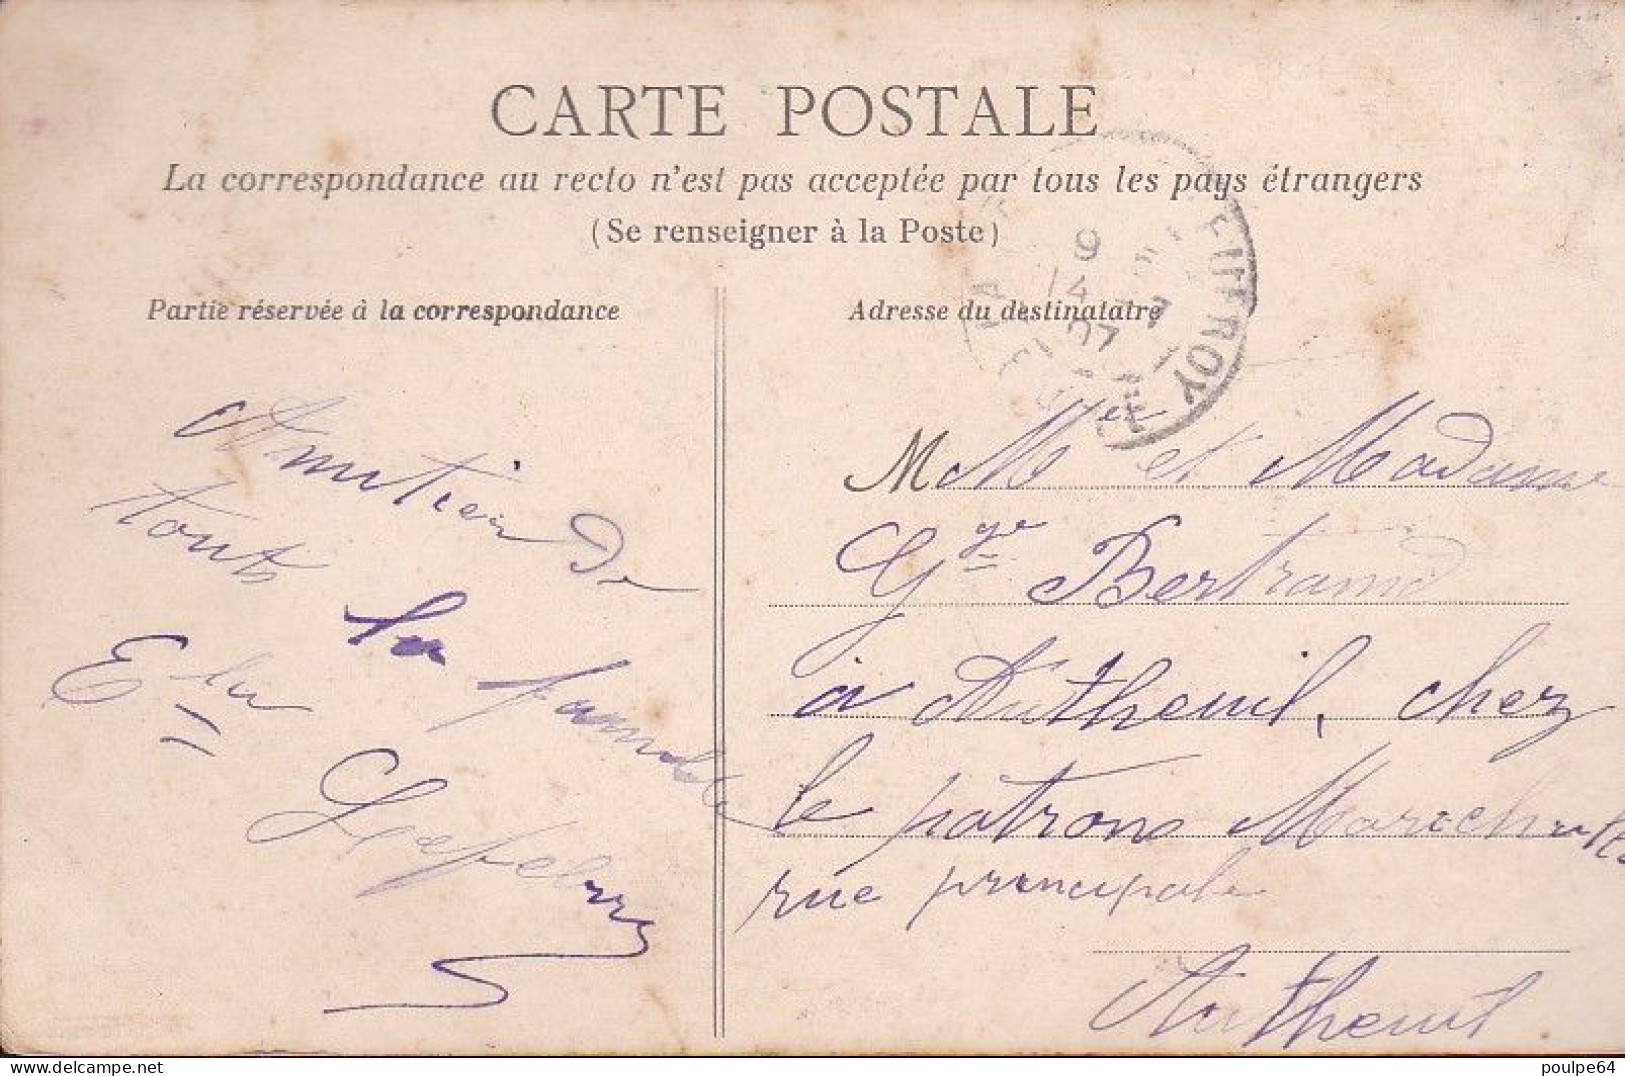 CARTE POSTALE
La correspondance au recto n'est pas acceptée par tous les pays étrangers
(Se renseigner à la Poste)
Partie réservée à la correspondance
Amutien de
touts
la famille
Adresse du destinataire
M Mr et Madame
Gge Bertrand
à Autheuil, chez
le patrons
rue principale
Autheuil
9
14
07
EUFROY
www.delcampe.net
poulpe64